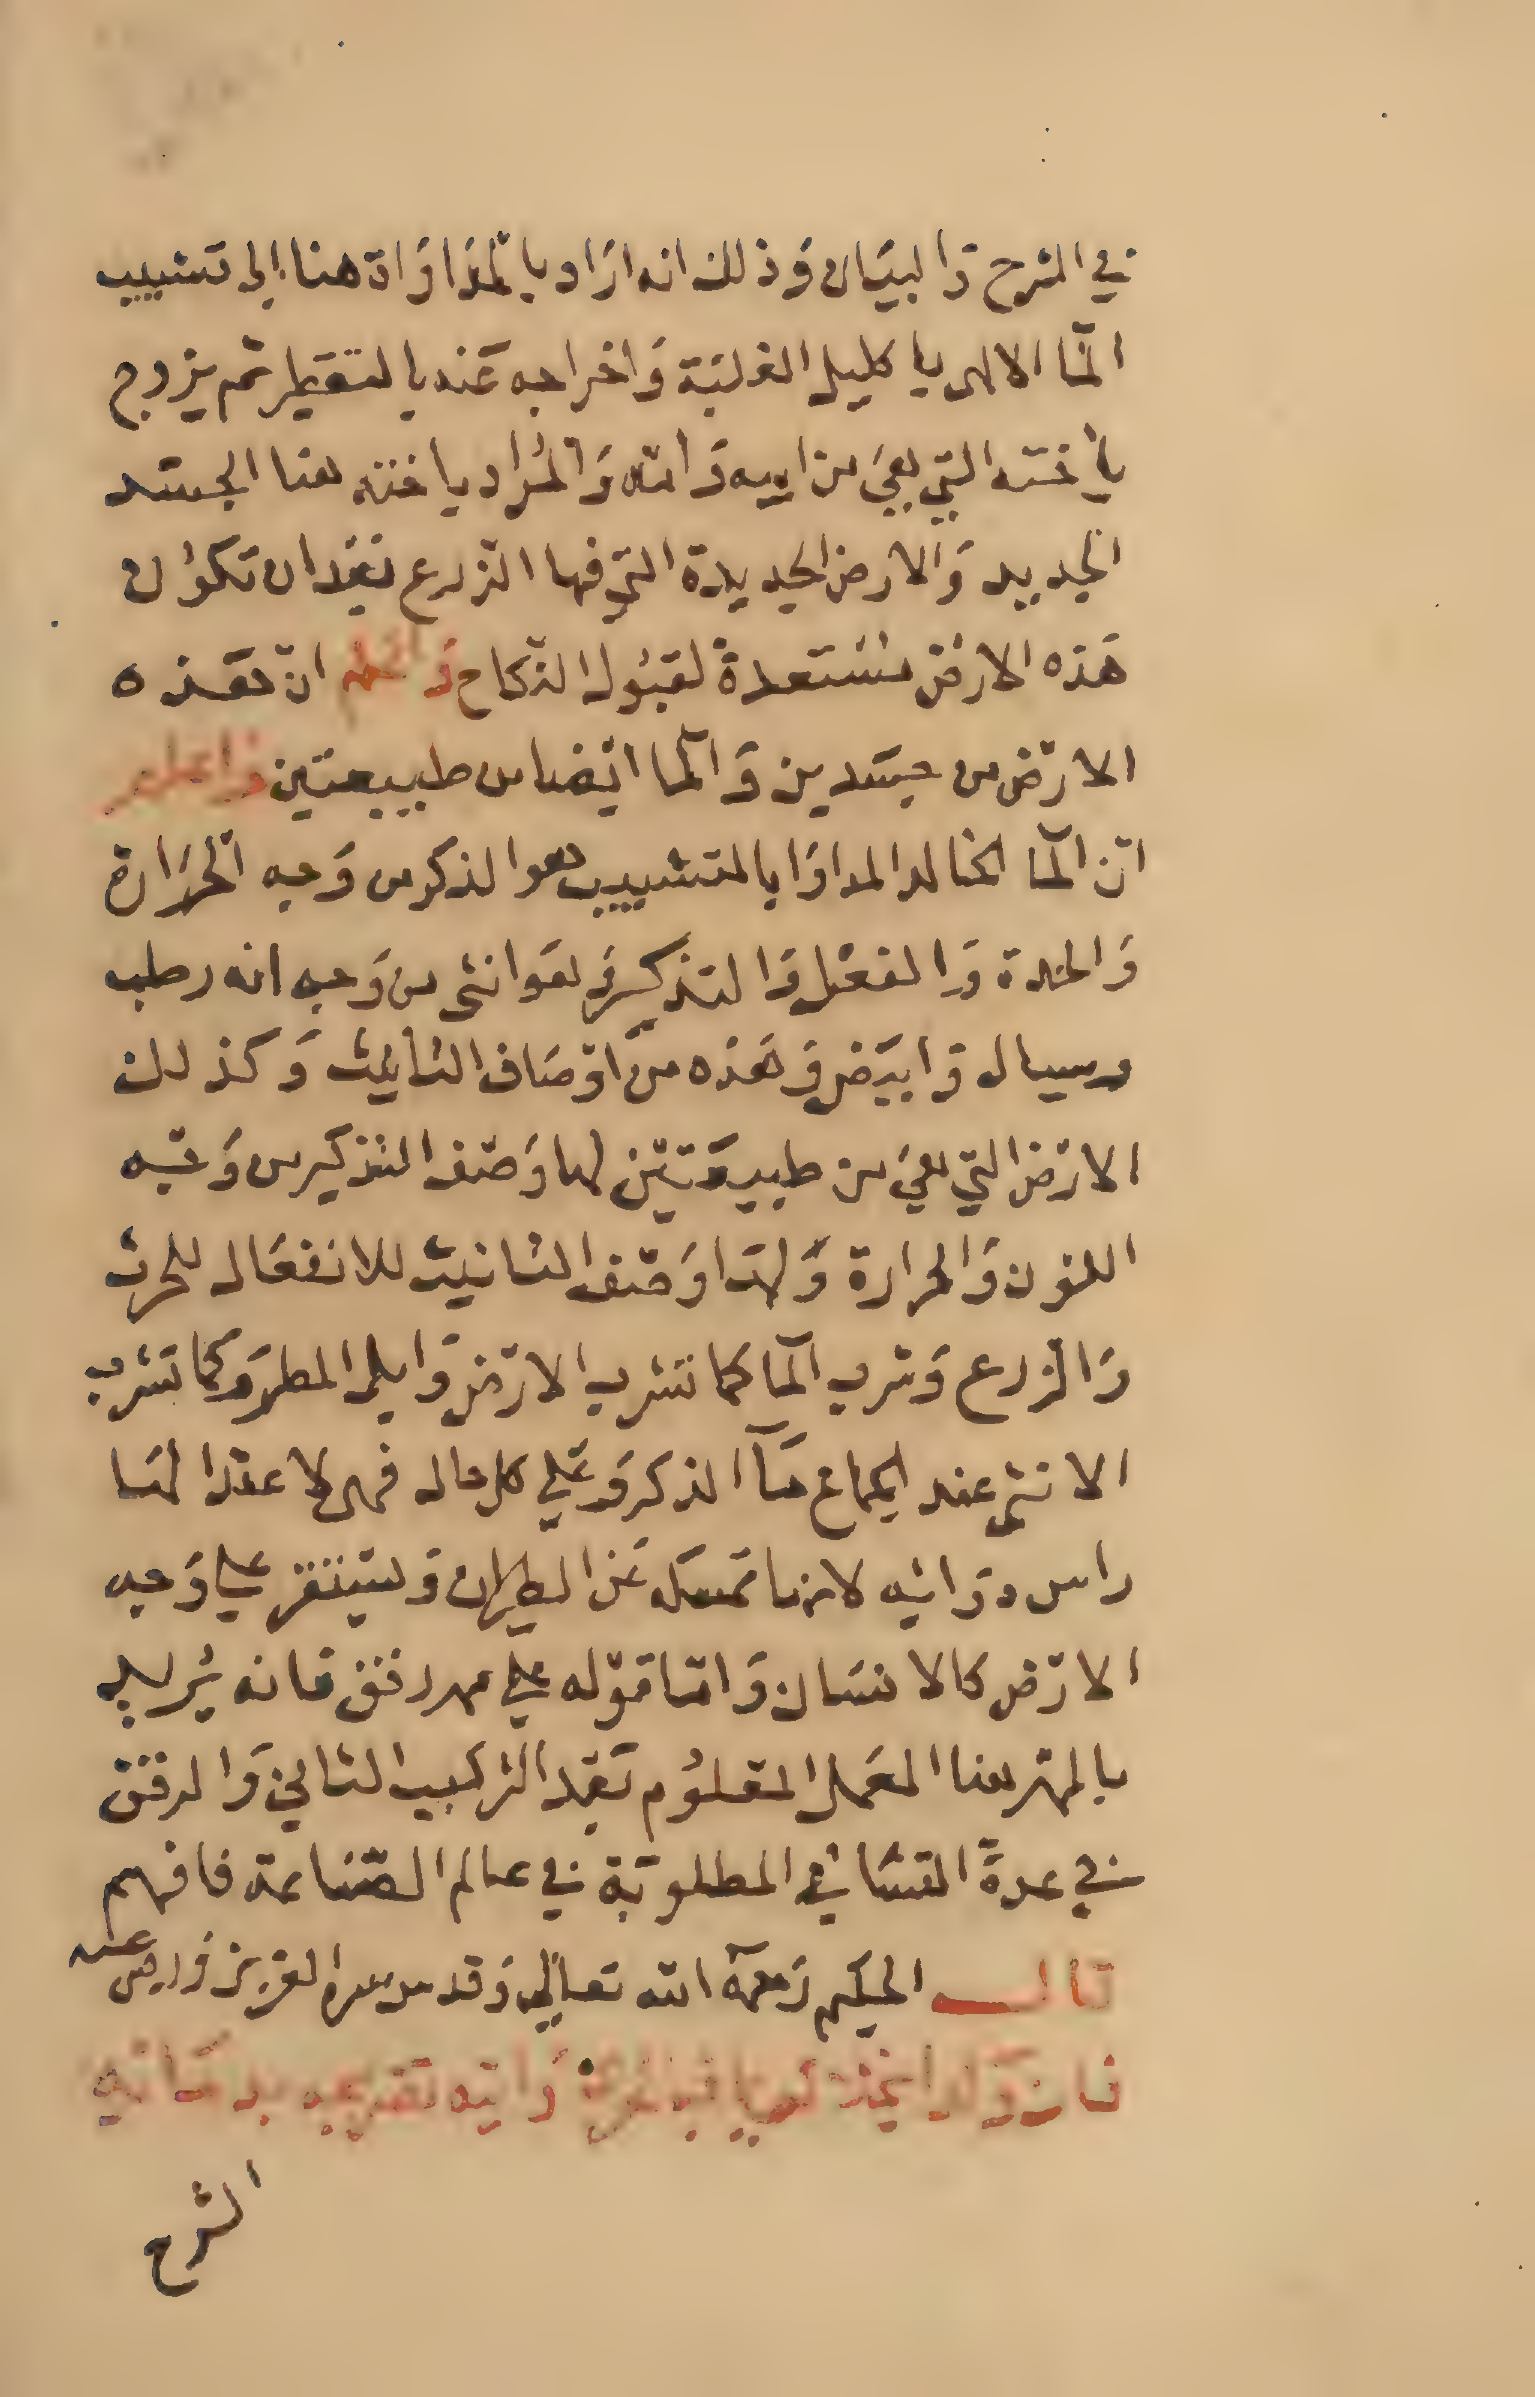 في الشرح والبيان وذلك انه اراد بالمداواة هنا الى تشبيب
الما الالهى باكليل الغلبة واخراجه عنه بالتقطير ثم يزوج
باخته التي هي من ابيه وامه والمراد باخته هنا الجسد
الجديد والارض الجديدة التي فيها الزرع بعد ان تكون
هذه الارض مستعدة لقبول النكاح واعلم ان هذه
الارض من جسدين والما ايضا من طبيعتين واعلم
ان الما الخالد المداوا بالتشبيب هو الذكر من وجه الحرارة
والحدة والفعل والتذكير وهو انثى من وجه انه رطب
وسيال وابيض وهذه من اوصاف التانيث وكذلك
الارض التي هي من طبيعتين لها وصف التذكير من وجه
اللون والحرارة ولها وصف التانيث للانفعال للحرث
والزرع وشرب الما كما تشرب الارض وابل المطر وكما تشرب
الانثى عند الجماع مآ الذكر وعلي كل حال فهى لاعقد الما
راس ودوائه لانها تمسكه عن الطيران وتستقر علي وجه
الارض كالانسان واما قوله علي مهر دفق فانه يريد
بالمهر هنا العمل المعلوم بعد التركيب الثاني والدفق
في عدة التساقي المطلوبة في عالم الصناعة فافهم
قال الحكيم رحمه الله تعالى وقدس سره العزيز وارض عنه
فان ولدا
الشرح